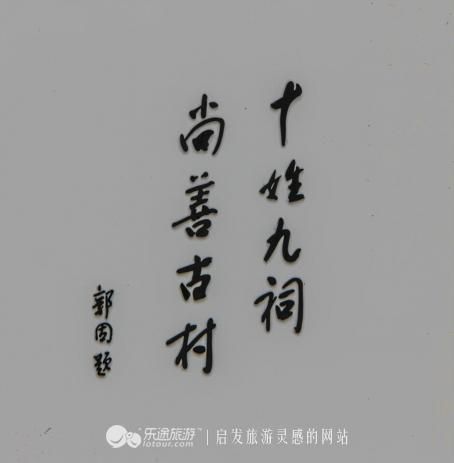 十姓九祠
尚善古村
郭因题
乐途旅游
lotour.com
启发旅游灵感的网站